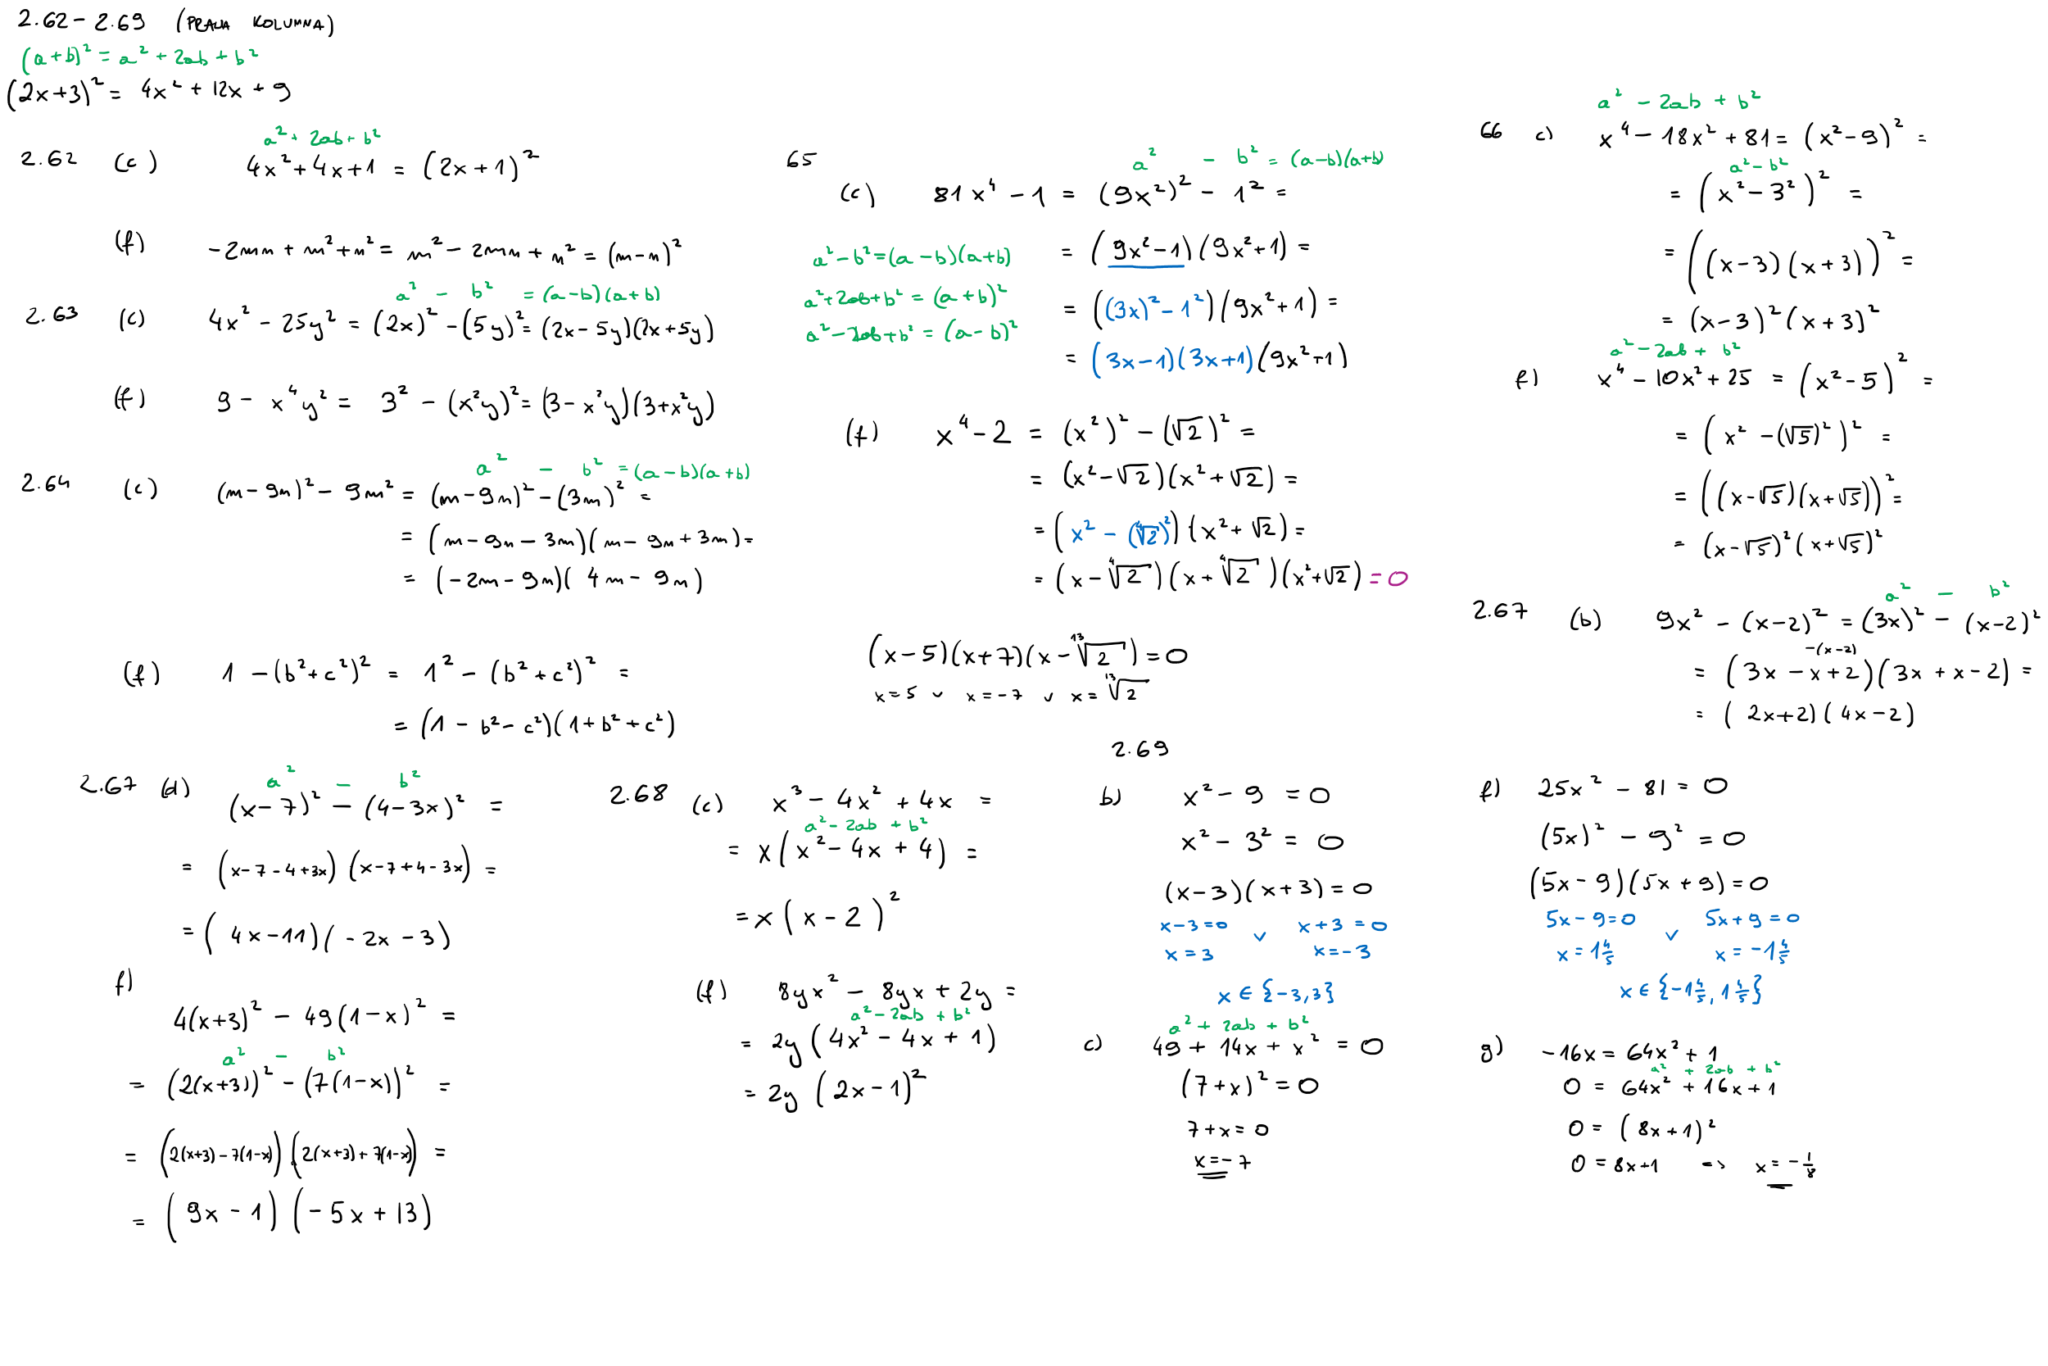 2.62 – 2.69 (PRAWA KOLUMNA)
(a+b)² = a² + 2ab + b²
(2x+3)² = 4x² + 12x + 9
a² + 2ab + b²
2.62 (c) 4x² + 4x + 1 = (2x+1)²
(f) -2mn + m² + n² = m² - 2mn + n² = (m-n)²
a² - b² = (a-b)(a+b)
2.63 (c) 4x² - 25y² = (2x)² - (5y)² = (2x-5y)(2x+5y)
(f) 9 - x⁴y² = 3² - (x²y)² = (3-x²y)(3+x²y)
a² - b² = (a-b)(a+b)
2.64 (c) (m-9n)² - 9m² = (m-9n)² - (3m)² =
= (m-9n-3m)(m-9n+3m) =
= (-2m-9n)(4m-9n)
(f) 1 - (b²+c²)² = 1² - (b²+c²)² =
= (1-b²-c²)(1+b²+c²)
65
a² - b² = (a-b)(a+b)
(c) 81x⁴ - 1 = (9x²)² - 1² =
= (9x²-1)(9x²+1) =
= ((3x)²-1²)(9x²+1) =
= (3x-1)(3x+1)(9x²+1)
a²-b² = (a-b)(a+b)
a²+2ab+b² = (a+b)²
a²-2ab+b² = (a-b)²
(f) x⁴-2 = (x²)² - (√2)² =
= (x²-√2)(x²+√2) =
= (x² - (⁴√2)²)(x²+√2) =
= (x-⁴√2)(x+⁴√2)(x²+√2) = 0
(x-5)(x+7)(x-¹³√2) = 0
x=5 ∨ x=-7 ∨ x=¹³√2
a² - 2ab + b²
66 c) x⁴ - 18x² + 81 = (x²-9)² =
a² - b²
= (x²-3²)² =
= ((x-3)(x+3))² =
= (x-3)²(x+3)²
a² - 2ab + b²
f) x⁴ - 10x² + 25 = (x²-5)² =
= (x² - (√5)²)² =
= ((x-√5)(x+√5))² =
= (x-√5)²(x+√5)²
a² - b²
2.67 (b) 9x² - (x-2)² = (3x)² - (x-2)²
-(x-2)
= (3x-x+2)(3x+x-2) =
= (2x+2)(4x-2)
a² - b²
2.67 (d) (x-7)² - (4-3x)² =
= (x-7-4+3x)(x-7+4-3x) =
= (4x-11)(-2x-3)
f)
4(x+3)² - 49(1-x)² =
a² - b²
= (2(x+3))² - (7(1-x))² =
= (2(x+3)-7(1-x))(2(x+3)+7(1-x)) =
= (9x-1)(-5x+13)
2.68 (c) x³ - 4x² + 4x =
a² - 2ab + b²
= x(x²-4x+4) =
= x(x-2)²
(f) 8yx² - 8yx + 2y =
a² - 2ab + b²
= 2y(4x²-4x+1)
= 2y(2x-1)²
2.69
b) x² - 9 = 0
x² - 3² = 0
(x-3)(x+3) = 0
x-3=0 ∨ x+3=0
x=3 x=-3
x ∈ {-3,3}
a² + 2ab + b²
c) 49 + 14x + x² = 0
(7+x)² = 0
7+x = 0
x=-7
f) 25x² - 81 = 0
(5x)² - 9² = 0
(5x-9)(5x+9) = 0
5x-9=0 ∨ 5x+9=0
x=1⅘ x=-1⅘
x ∈ {-1⅘, 1⅘}
g) -16x = 64x² + 1
a² + 2ab + b²
0 = 64x² + 16x + 1
0 = (8x+1)²
0 = 8x+1 => x=-⅛